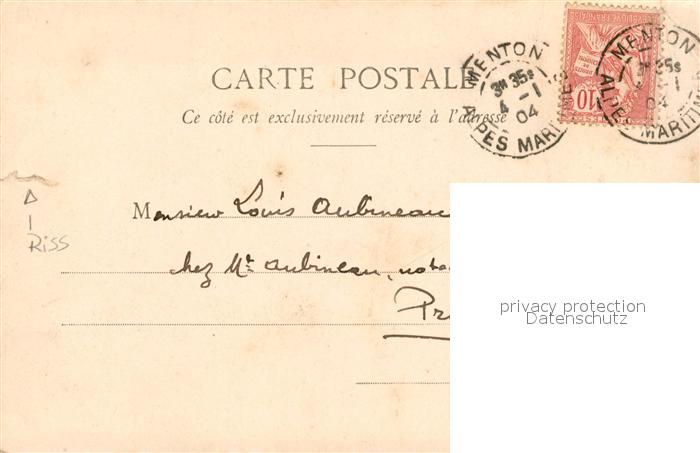 CARTE POSTALE
Ce côté est exclusivement réservé à l'adresse
MENTON
3M 35s
4 - 1
04
ALPES MARIT
RÉPUBLIQUE FRANÇAISE
10
POSTES
MENTON
35s
1
04
ALPES MARITIM
Monsieur Louis Aubineau
chez Mr Aubineau, nota
Pr
RiSS
privacy protection
Datenschutz